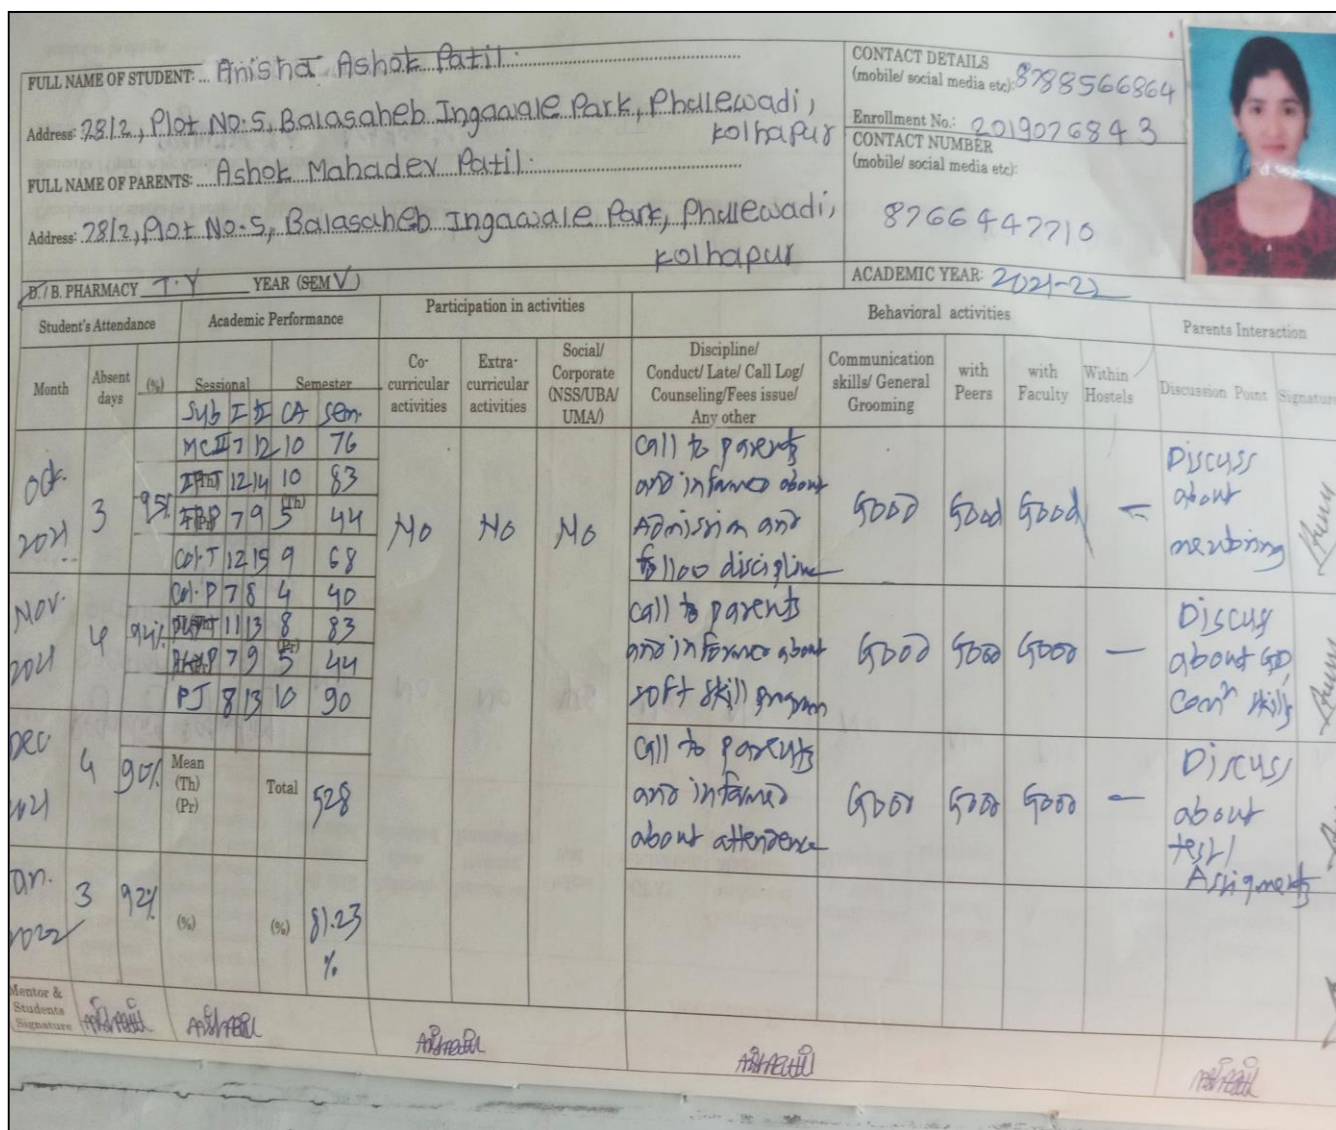 FULL NAME OF STUDENT: Anisha Ashok Patil.
Address: 2812, Plot No:5, Balasaheb Ingawale Park, Phulewadi,
Kolhapur
FULL NAME OF PARENTS: Ashok Mahadev Patil.
Address: 2812, Plot No.5, Balasaheb Ingawale Park, Phulewadi,
Kolhapur
CONTACT DETAILS
(mobile/ social media etc): 8788566864
Enrollment No.: 2019076843
CONTACT NUMBER
(mobile/ social media etc):
8766447710
D. / B. PHARMACY T.Y YEAR (SEM V)
ACADEMIC YEAR: 2021-22
Student's Attendance Academic Performance Participation in activities Behavioral activities Parents Interaction
Month Absent days (%) Sessional Semester
Co-curricular activities
Extra-curricular activities
Social/ Corporate (NSS/UBA/ UMA/)
Discipline/ Conduct/ Late/ Call Log/ Counseling/Fees issue/ Any other
Communication skills/ General Grooming
with Peers
with Faculty
Within Hostels
Discussion Point Signature
Sub I II CA Sem.
MC II 7 12 10 76
12 14 10 83
7 9 5 (Th) 44
Col. T 12 15 9 68
Col. P 7 8 4 40
11 13 8 83
7 9 5 (Pr) 44
PJ 8 13 10 90
Oct. 2021 3 95% No No No
Call to parents
and informed about
Admission and
follow discipline
Good Good Good -
Discuss
about
mentoring
Nov. 2021 4 94%
Call to parents
and informed about
soft skill program
Good Good Good -
Discuss
about GD,
Comn skills
Dec 2021 4 90%
Mean (Th) (Pr) Total 528
Call to parents
and informed
about attendence
Good Good Good -
Discuss
about
test/
Assigments
an. 2022 3 92% (%) (%) 81.23 %
Mentor & Students Signature